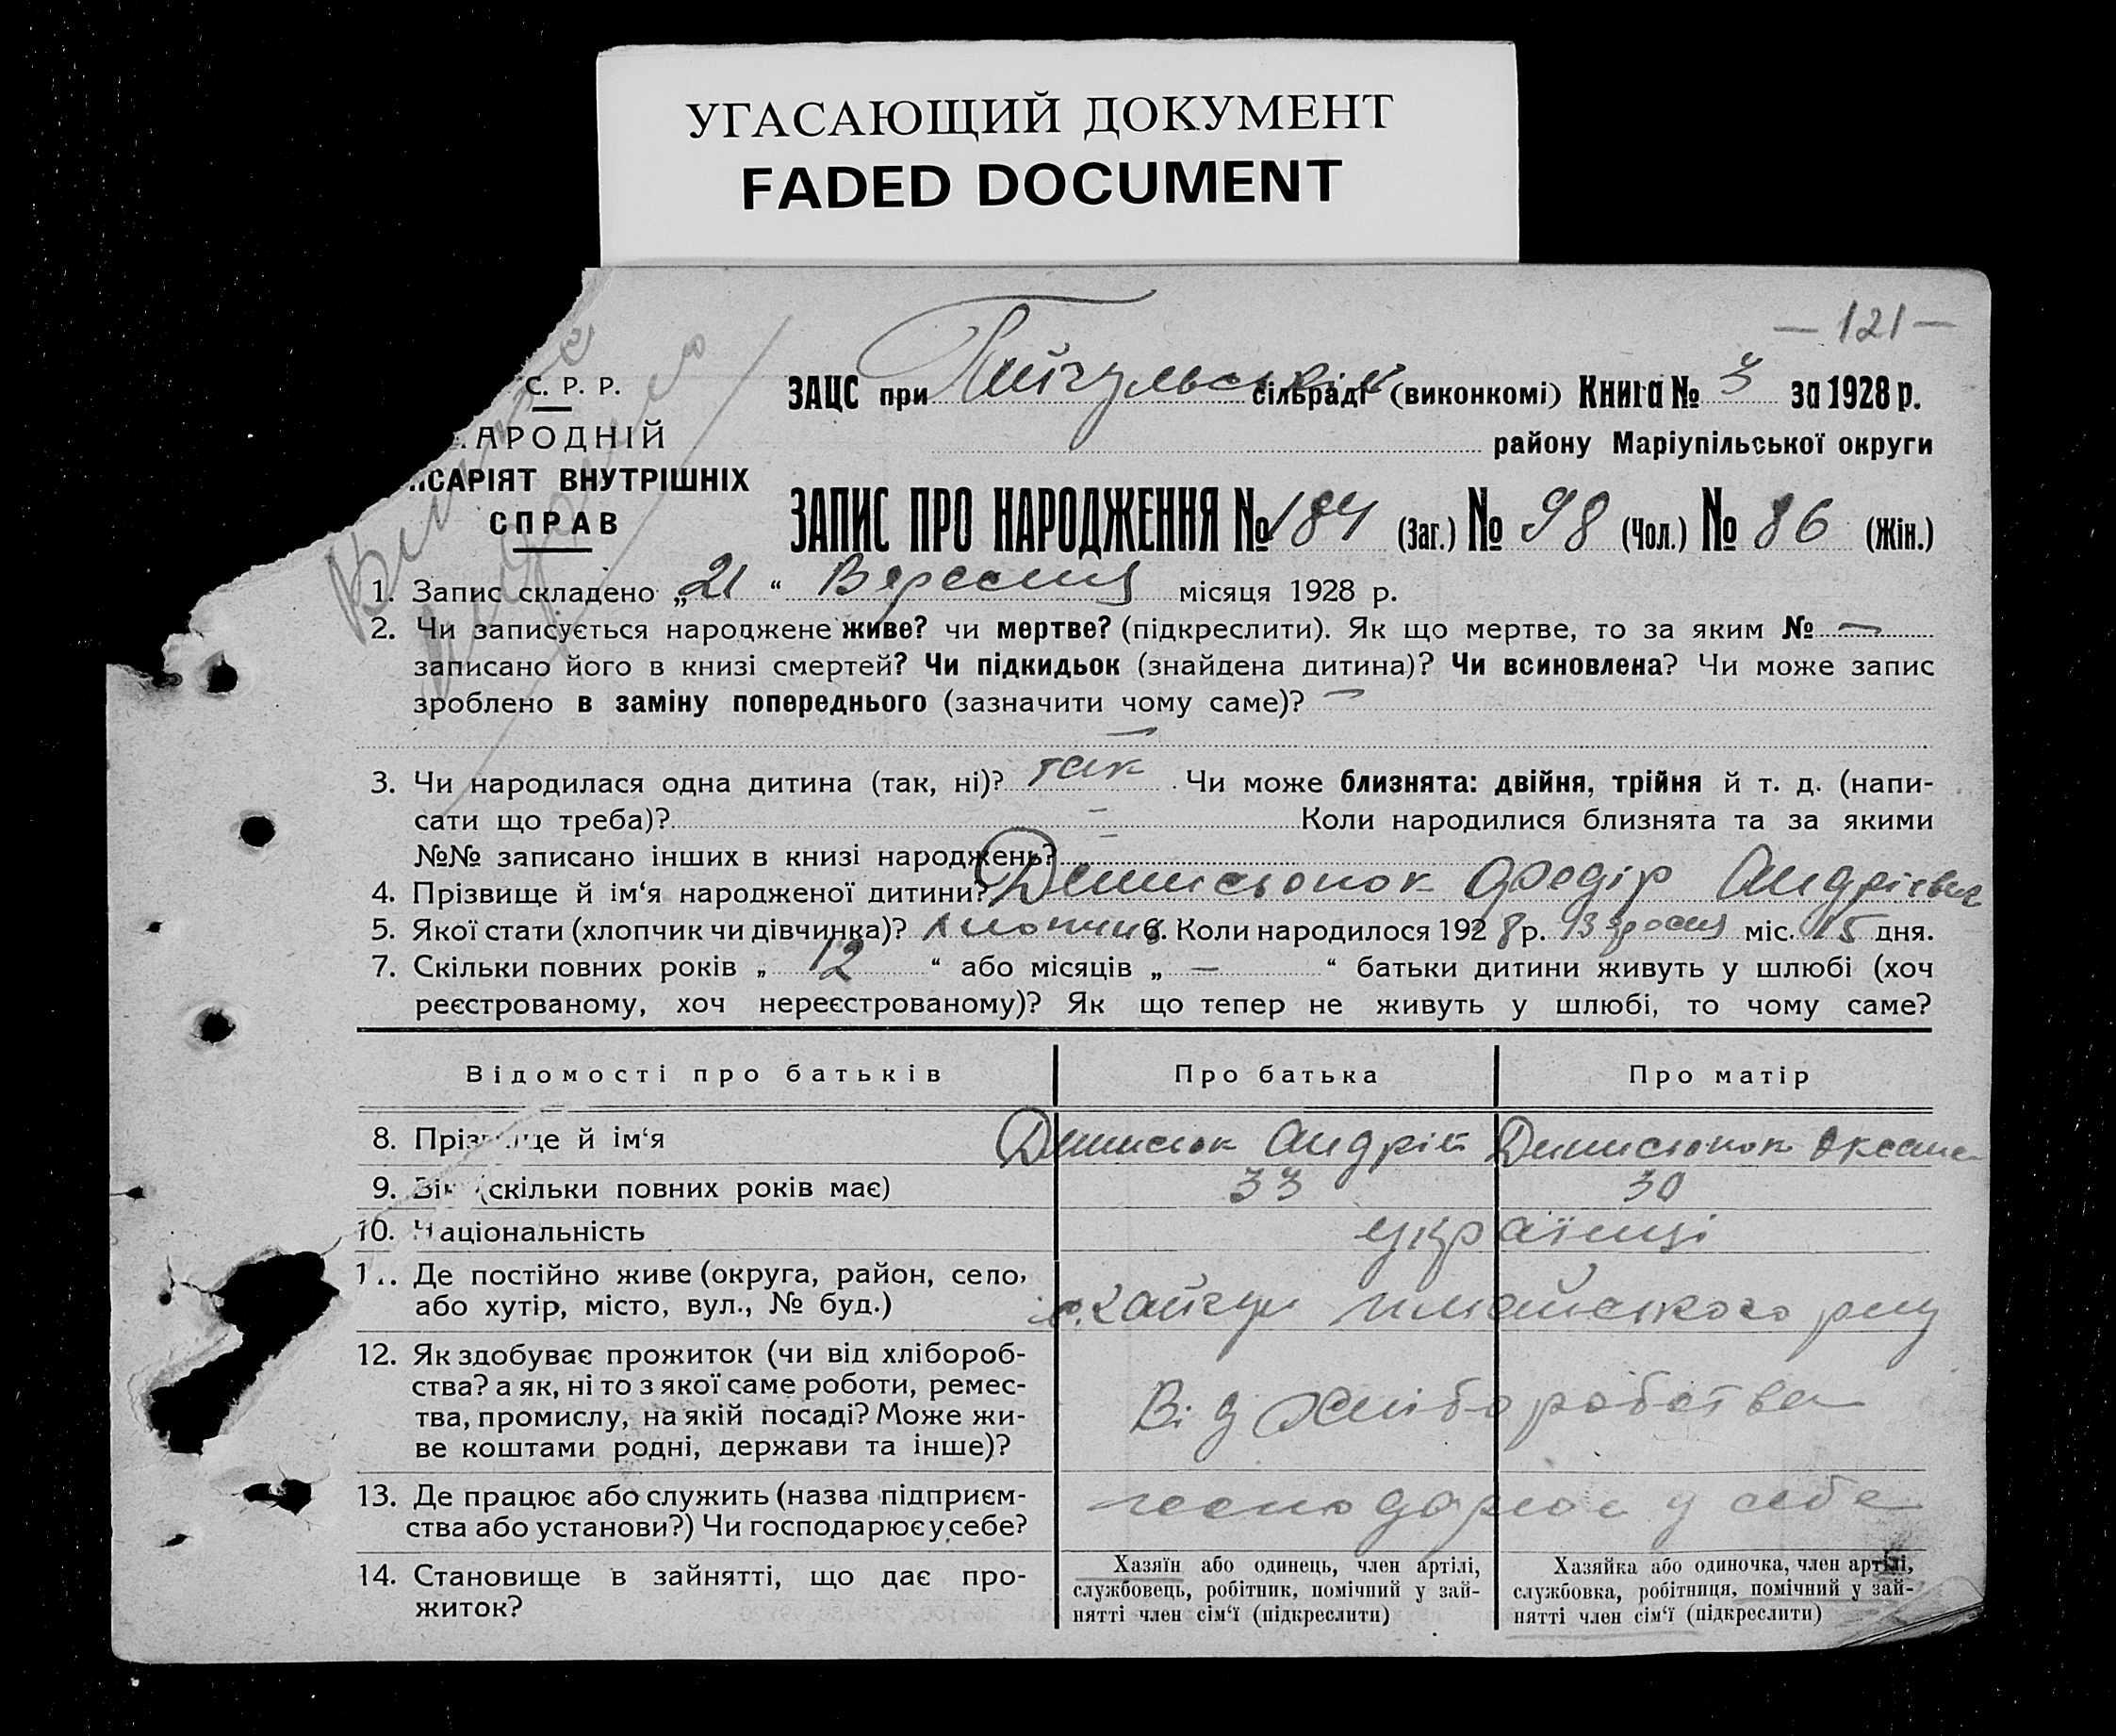 УГАСАЮЩИЙ ДОКУМЕНТ
FADED DOCUMENT
— 121 —
С. Р. Р.
АРОДНІЙ
САРІЯТ ВНУТРІШНІХ
СПРАВ
ЗАЦС при сільраді (виконкомі) Книга № 3 за 1928 р.
району Маріупільської округи
ЗАПИС ПРО НАРОДЖЕННЯ № 184 (Заг.) № 98 (Чол.) № 86 (Жін.)
1. Запис складено „21“ Вересня місяця 1928 р.
2. Чи записується народжене живе? чи мертве? (підкреслити). Як що мертве, то за яким № —
записано його в книзі смертей? Чи підкидьок (знайдена дитина)? Чи всиновлена? Чи може запис
зроблено в заміну попереднього (зазначити чому саме)? —
—
3. Чи народилася одна дитина (так, ні)? так. Чи може близнята: двійня, трійня й т. д. (напи-
сати що треба)? — Коли народилися близнята та за якими
№№ записано інших в книзі народжень? —
4. Прізвище й ім‘я народженої дитини? Денисюнок Федір Андрієвич
5. Якої стати (хлопчик чи дівчинка)? хлопчик 6. Коли народилося 1928 р. Вересня міс. 15 дня.
7. Скільки повних років „12“ або місяців „—“ батьки дитини живуть у шлюбі (хоч
реєстрованому, хоч нереєстрованому)? Як що тепер не живуть у шлюбі, то чому саме?
Відомості про батьків Про батька Про матір
8. Прізвище й ім‘я Андрій Денисюнок Оксана
9. Вік (скільки повних років має) 33 30
10. Національність українці
11. Де постійно живе (округа, район, село, або хутір, місто, вул., № буд.)
12. Як здобуває прожиток (чи від хлібороб-
ства? а як, ні то з якої саме роботи, ремес-
тва, промислу, на якій посаді? Може жи-
ве коштами родні, держави та інше)?
Від хліборобства
13. Де працює або служить (назва підприєм-
ства або установи?) Чи господарює у себе?
господарює у себе
14. Становище в зайнятті, що дає про-
житок?
Хазяїн або одинець, член артілі,
службовець, робітник, помічний у зай-
нятті член сім‘ї (підкреслити)
Хазяйка або одиночка, член артілі,
службовка, робітниця, помічний у зай-
нятті член сім‘ї (підкреслити)